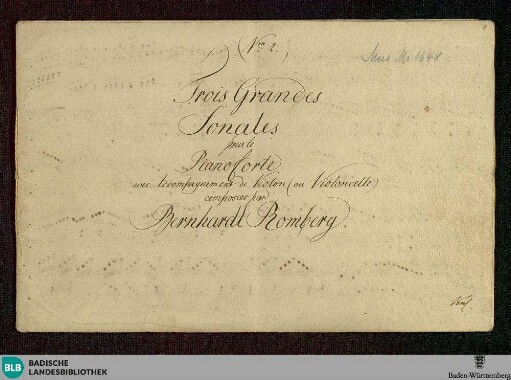 (Nro 2.)
Mus. Ms 1648
Trois Grandes
Sonates
pour le
Pianoforte
avec Accompagnement de Violon (ou Violoncelle)
composées par
Bernhardt Romberg.
BLB BADISCHE
LANDESBIBLIOTHEK
Baden-Württemberg